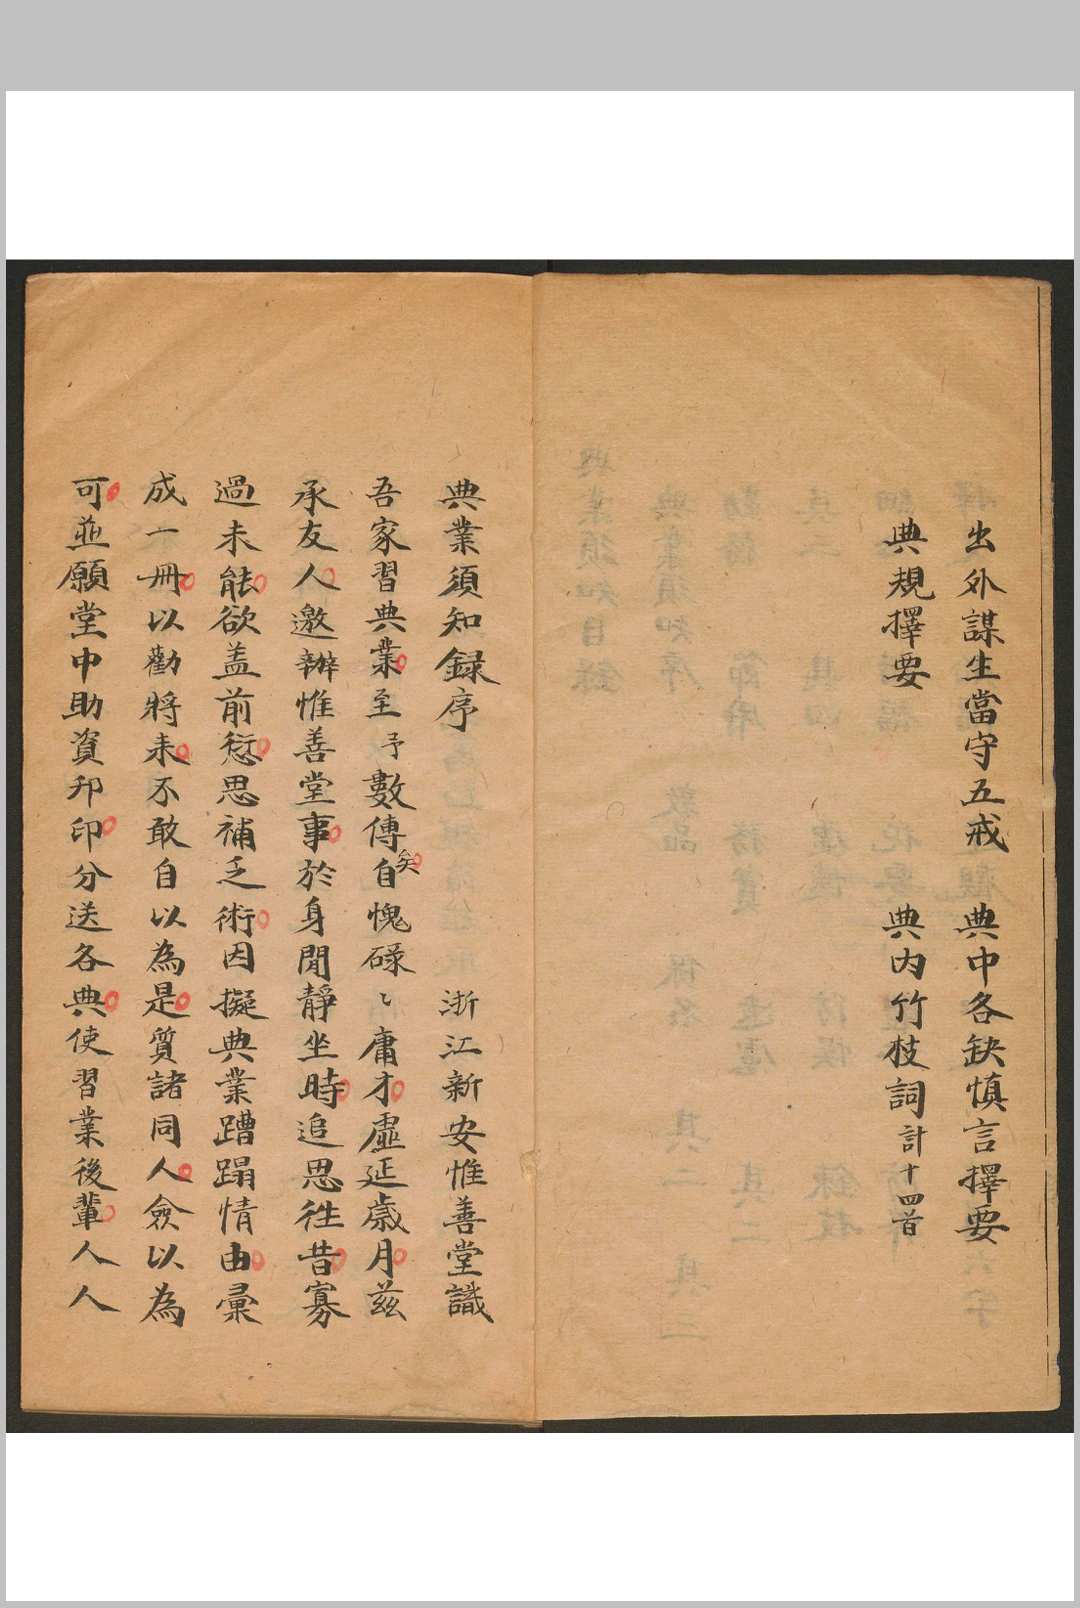 出外謀生當守五戒　典中各缺慎言擇要
典規擇要　典內竹枝詞計十四首
典業須知録序　浙江新安惟善堂識
吾家習典業至予數傳矣自愧碌〻庸才虛延歲月茲
承友人邀辦惟善堂事於身閒靜坐時追思徃昔寡
過未能欲盖前愆思補乏術因擬典業蹧蹋情由彙
成一冊以勸將来不敢自以為是質諸同人僉以為
可並願堂中助資刷印分送各典使習業後輩人人